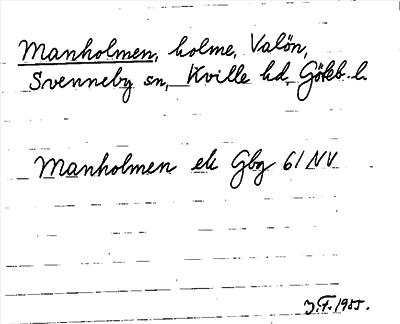 Manholmen, holme, Valön,
Svenneby sn, Kville hd, Göteb. l.
Manholmen ek Gbg 61 NV
J.F. 1955.